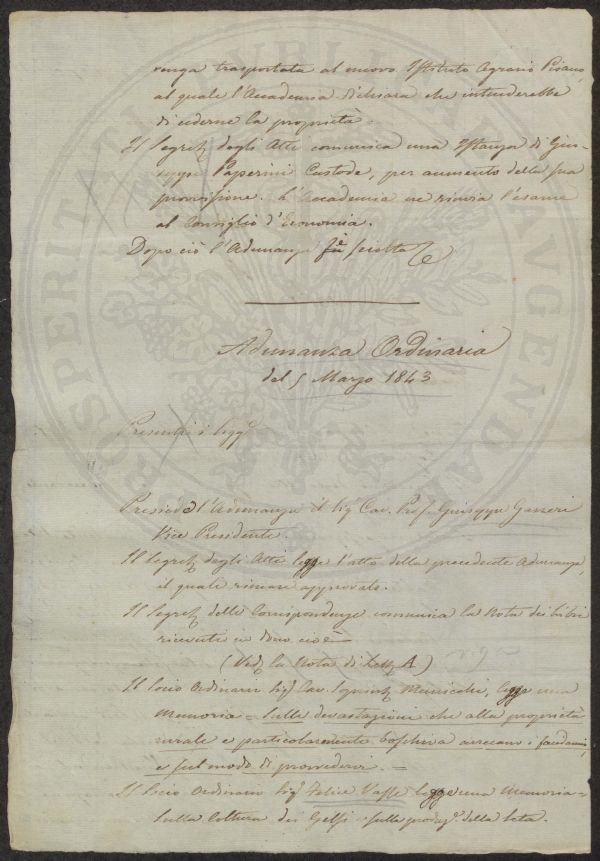 venga trasportata al nuovo Istituto Agrario Pisano,
al quale l'Accademia dichiara che intenderebbe
di cederne la proprietà.
Il Segret.º degli Atti comunica una Istanza di Giu-
seppe Paperini Custode, per aumento della sua
provvisione. L'Accademia ne rinvia l'esame
al Consiglio d'Economia.
Dopo ciò l'Adunanza fù sciolta
Adunanza Ordinaria
del 5 Marzo 1843
Presenti i Sigg.ri
Presiede l'Adunanza il Sig.r Cav. Prof. Giuseppe Gazzeri
Vice Presidente.
Il Segret.º degli Atti legge l'atto della precedente Adunanza,
il quale rimane approvato.
Il Segret.º delle Corrispondenze comunica la Nota dei Libri
ricevuti in dono cioè =
(Ved. la Nota di Lett. A)
Il Socio Ordinario Sig.r Cav. legge una
Memoria = sulle devastazioni che alla proprietà
rurale e particolarmente boschiva arrecano i
e sul modo di provvedervi. =
Il Socio Ordinario Sig.r Felice legge una Memoria =
sulla Coltura dei Gelsi e sulla produz.e della Seta.
PROSPERITATI PVBLICAE AVGENDAE